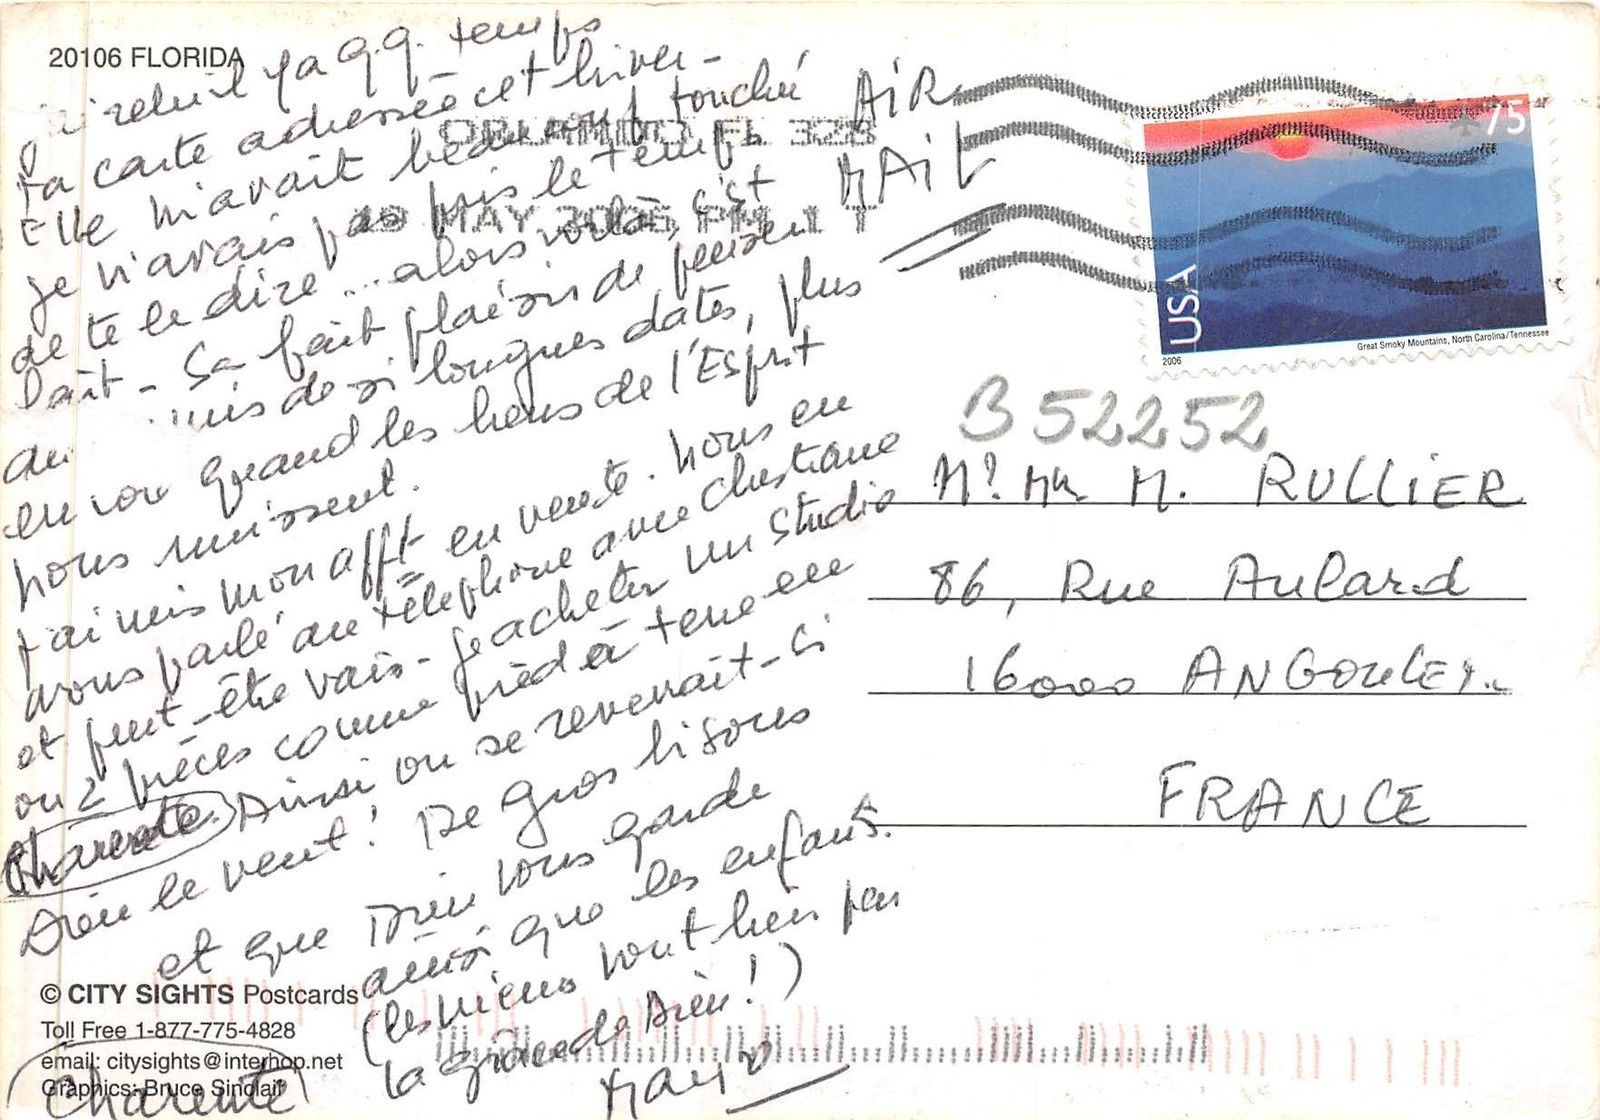 20106 FLORIDA
j'ai relu il y a q.q. temps
ta carte adressée cet hiver -
Elle m'avait beaucoup touché
je n'avais pas pris le temps
de te le dire ... alors voilà, c'est
bait - Sa fait plaisir de penser
au amis de si longues dates, plus
encore quand les liens de l'Esprit
nous unissent.
J'ai mis mon afft en vente. Nous en
avons parlé au téléphone avec Christiane
et peut-être vais-je acheter un studio
ou 2 pièces comme pied à terre en
Charente. Ainsi on se reverrait - si
Dieu le veut! De gros bisous
et que Dieu vous garde
ainsi que les enfants.
(les miens vont bien par
la grâce de Dieu!)
Charente
AIR
MAIL
ORLANDO FL 328
MAY 2006 PM 1 T
75
USA
2006
Great Smoky Mountains, North Carolina/Tennessee
B 52252
M. RULLIER
86, Rue Aulard
16000
FRANCE
© CITY SIGHTS Postcards
Toll Free 1-877-775-4828
email: citysights@interhop.net
Graphics: Bruce Sinclair